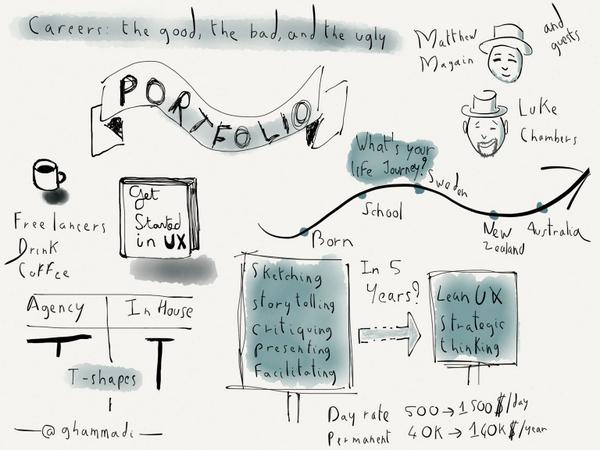 Careers: the good, the bad, and the ugly
Matthew
Magain
and
guests
PORTFOLIO
Luke
Chambers
What's your
life Journey?
Sweden
School
Born
New
Zealand
Australia
Freelancers
Drink
Coffee
Get
Started
in UX
Sketching
storytelling
critiquing
presenting
Facilitating
In 5
Years?
Lean UX
Strategic
thinking
Agency
In House
T-shapes
@ghammadi
Day rate 500→1500$/day
Permanent 40K→140K$/year